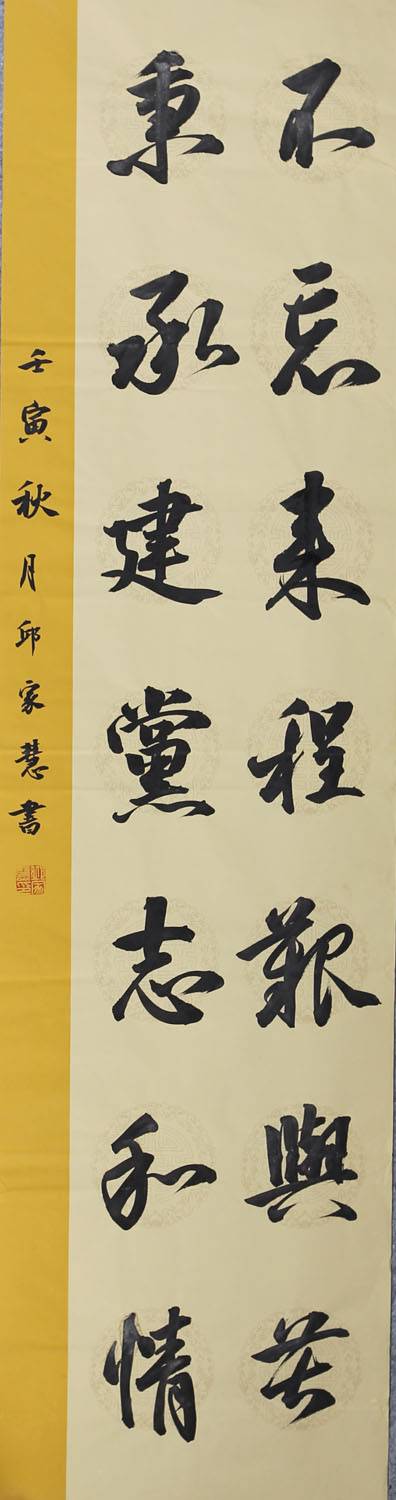 不忘来程艱與苦
秉承建黨志和情
壬寅秋月邱家慧書